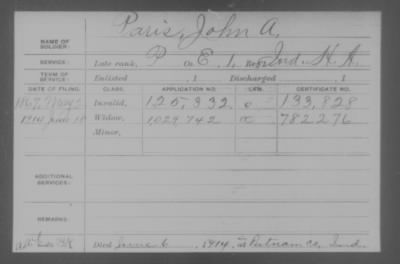 NAME OF SOLDIER: Paris, John A.
SERVICE: Late rank, P Co. E, 1, Reg't Ind. H. A.
TERM OF SERVICE: Enlisted , 1 Discharged , 1
DATE OF FILING. CLASS. APPLICATION NO. LAW. CERTIFICATE NO.
1867, May Invalid, 125,332 133,828
1914 June 18 Widow, 1029742 782276
Minor,
ADDITIONAL SERVICES:
REMARKS:
Died June 6, 1914, at Putnam Co, Ind.